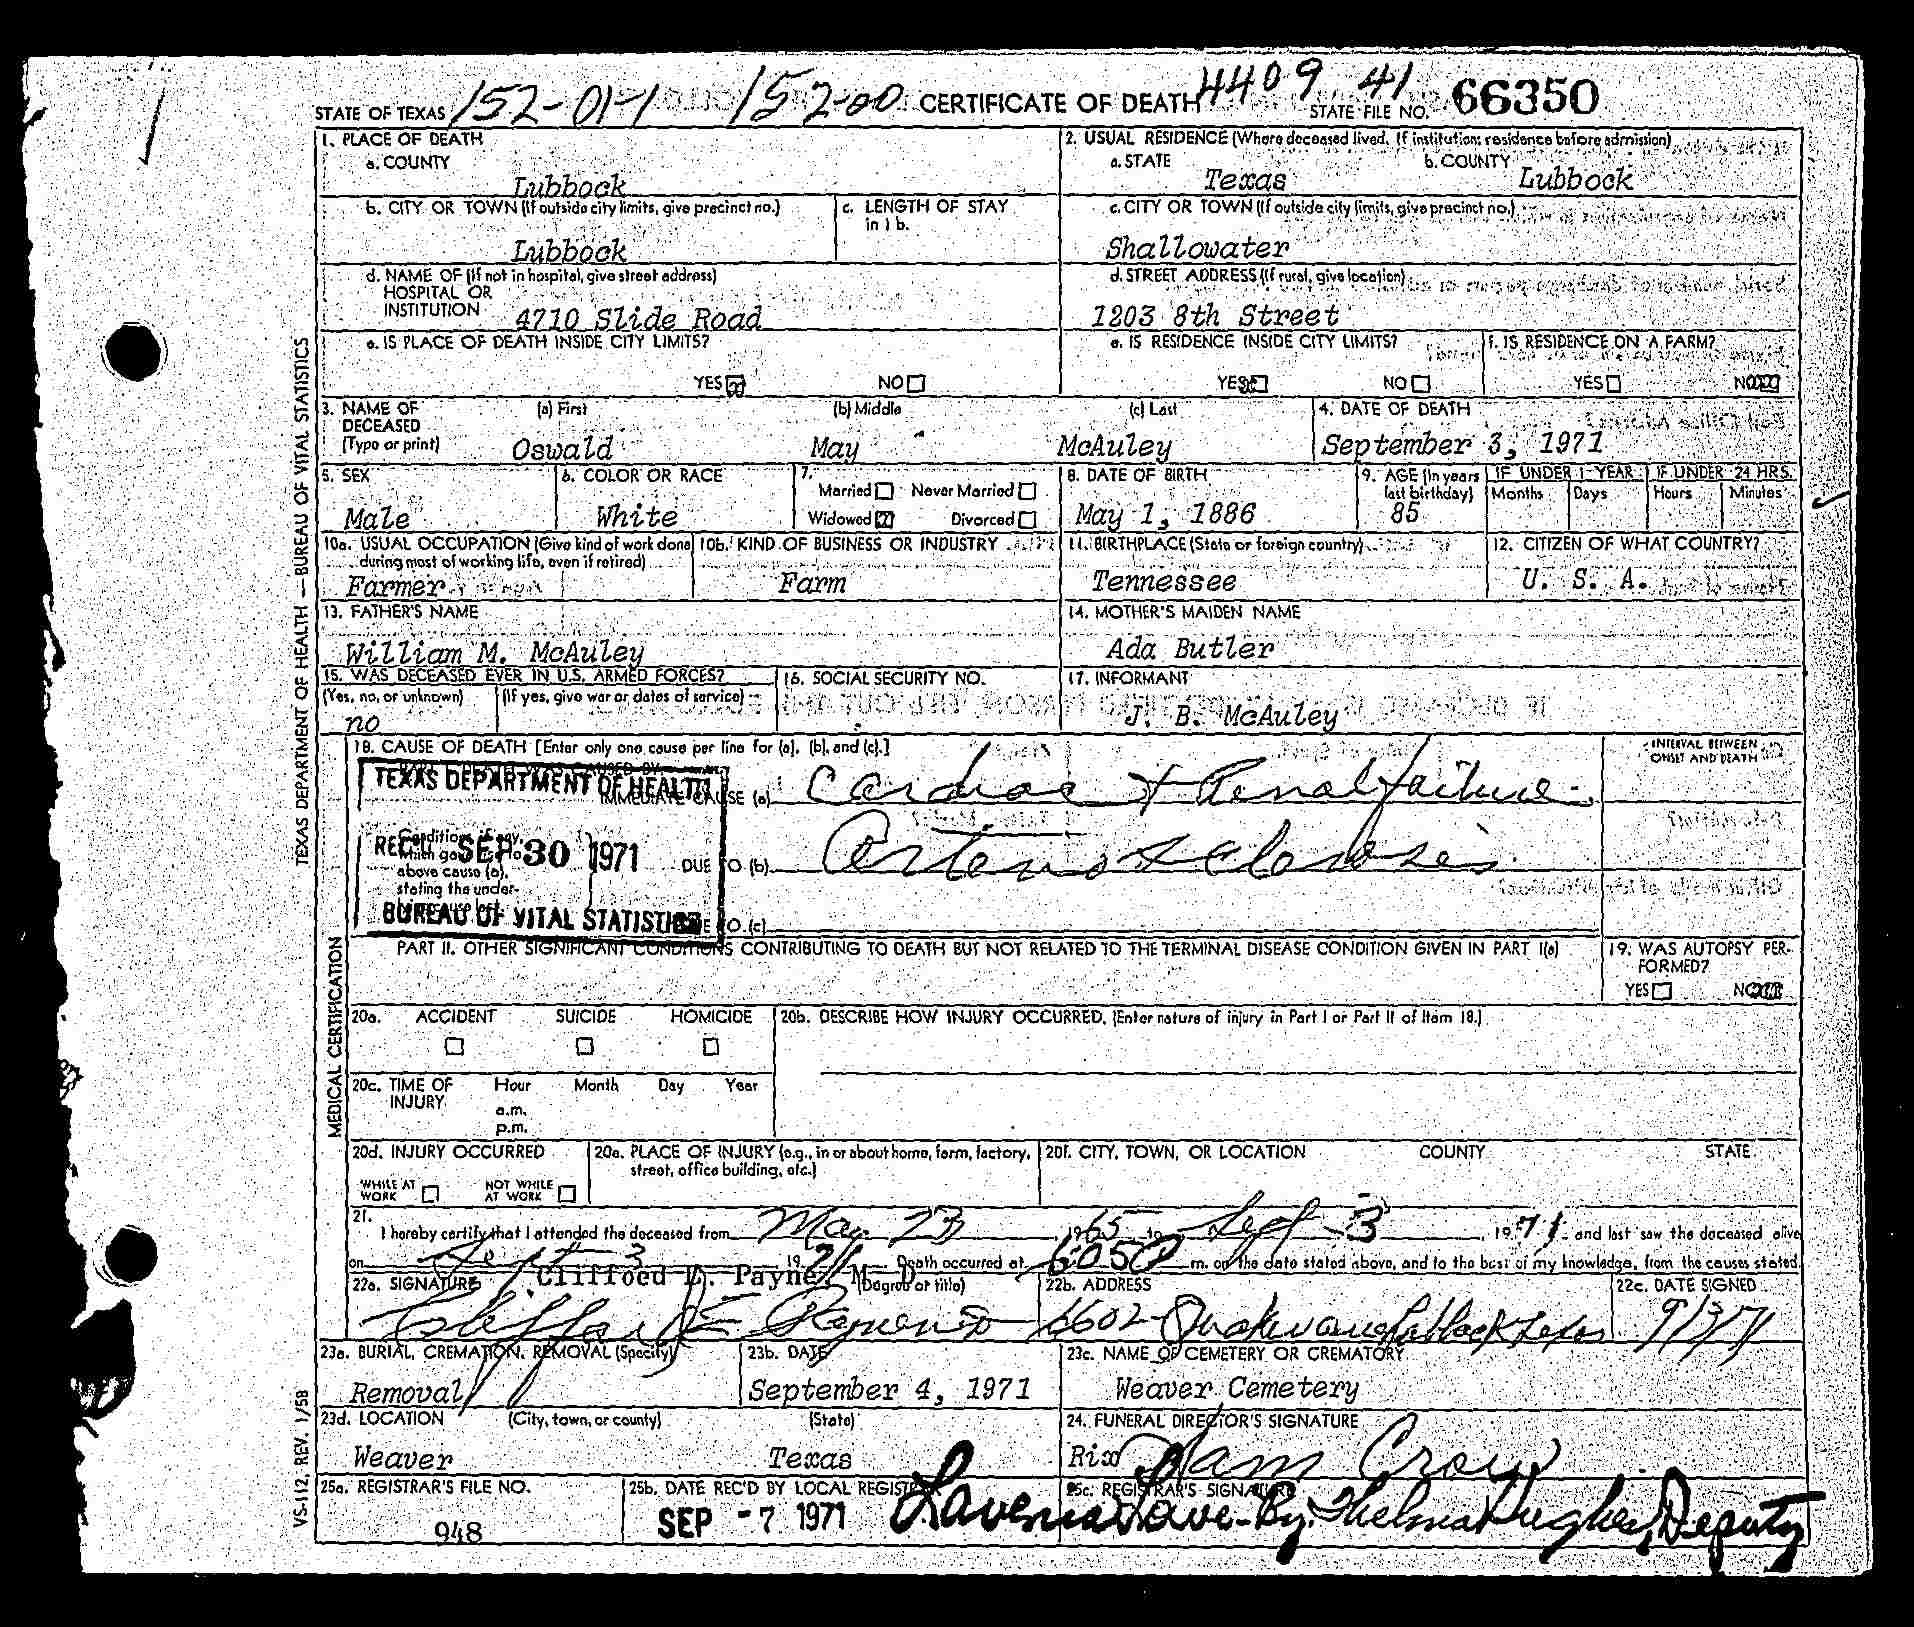 STATE OF TEXAS 152-01-1 152-00 CERTIFICATE OF DEATH 4409 41 STATE FILE NO. 66350
1. PLACE OF DEATH
a. COUNTY
Lubbock
2. USUAL RESIDENCE (Where deceased lived. If institution: residence before admission)
a. STATE b. COUNTY
Texas Lubbock
b. CITY OR TOWN (If outside city limits, give precinct no.)
Lubbock
c. LENGTH OF STAY
in 1 b.
c. CITY OR TOWN (If outside city limits, give precinct no.)
Shallowater
d. NAME OF (If not in hospital, give street address)
HOSPITAL OR
INSTITUTION 4710 Slide Road
d. STREET ADDRESS (If rural, give location)
1203 8th Street
e. IS PLACE OF DEATH INSIDE CITY LIMITS?
YES NO
e. IS RESIDENCE INSIDE CITY LIMITS?
YES NO
f. IS RESIDENCE ON A FARM?
YES NO
3. NAME OF DECEASED (Type or print)
(a) First (b) Middle (c) Last
Oswald May McAuley
4. DATE OF DEATH
September 3, 1971
5. SEX
Male
6. COLOR OR RACE
White
7.
Married Never Married
Widowed Divorced
8. DATE OF BIRTH
May 1, 1886
9. AGE (In years last birthday)
85
IF UNDER 1 YEAR IF UNDER 24 HRS.
Months Days Hours Minutes
10a. USUAL OCCUPATION (Give kind of work done
during most of working life, even if retired)
Farmer
10b. KIND OF BUSINESS OR INDUSTRY
Farm
11. BIRTHPLACE (State or foreign country)
Tennessee
12. CITIZEN OF WHAT COUNTRY?
U. S. A.
13. FATHER'S NAME
William M. McAuley
14. MOTHER'S MAIDEN NAME
Ada Butler
15. WAS DECEASED EVER IN U.S. ARMED FORCES?
(Yes, no, or unknown) (If yes, give war or dates of service)
no
16. SOCIAL SECURITY NO.
17. INFORMANT
J. B. McAuley
18. CAUSE OF DEATH [Enter only one cause per line for (a), (b), and (c).]
INTERVAL BETWEEN
ONSET AND DEATH
IMMEDIATE CAUSE (a) Cardiac + Renal failure
TEXAS DEPARTMENT OF HEALTH
REC'D SEP 30 1971
BUREAU OF VITAL STATISTICS
Conditions, if any,
which gave rise to
above cause (a),
stating the under-
DUE TO (b)
DUE TO (c)
PART II. OTHER SIGNIFICANT CONDITIONS CONTRIBUTING TO DEATH BUT NOT RELATED TO THE TERMINAL DISEASE CONDITION GIVEN IN PART I(a)
19. WAS AUTOPSY PER-
FORMED?
YES NO
20a. ACCIDENT SUICIDE HOMICIDE
20b. DESCRIBE HOW INJURY OCCURRED. (Enter nature of injury in Part I or Part II of Item 18.)
20c. TIME OF INJURY Hour Month Day Year
a.m.
p.m.
20d. INJURY OCCURRED
WHILE AT WORK NOT WHILE AT WORK
20e. PLACE OF INJURY (e.g., in or about home, farm, factory,
street, office building, etc.)
20f. CITY, TOWN, OR LOCATION COUNTY STATE
21.
I hereby certify that I attended the deceased from May 23, 1965 to Sept 3, 1971 and last saw the deceased alive
on Sept 3 1971 Death occurred at 605 P m. on the date stated above, and to the best of my knowledge, from the causes stated.
22a. SIGNATURE Cliffoed E. Payne, M. D. (Degree or title)
22b. ADDRESS
6602 Quaker ave Lubbock Texas
22c. DATE SIGNED
9/3/71
23a. BURIAL, CREMATION, REMOVAL (Specify)
Removal
23b. DATE
September 4, 1971
23c. NAME OF CEMETERY OR CREMATORY
Weaver Cemetery
23d. LOCATION (City, town, or county) (State)
Weaver Texas
24. FUNERAL DIRECTOR'S SIGNATURE
Rix Sam Crow
25a. REGISTRAR'S FILE NO.
948
25b. DATE REC'D BY LOCAL REGISTRAR
SEP -7 1971
25c. REGISTRAR'S SIGNATURE
Lavenia Lowe - By: Thelma Hughes, Deputy
TEXAS DEPARTMENT OF HEALTH — BUREAU OF VITAL STATISTICS
MEDICAL CERTIFICATION
VS-112, REV. 1/58